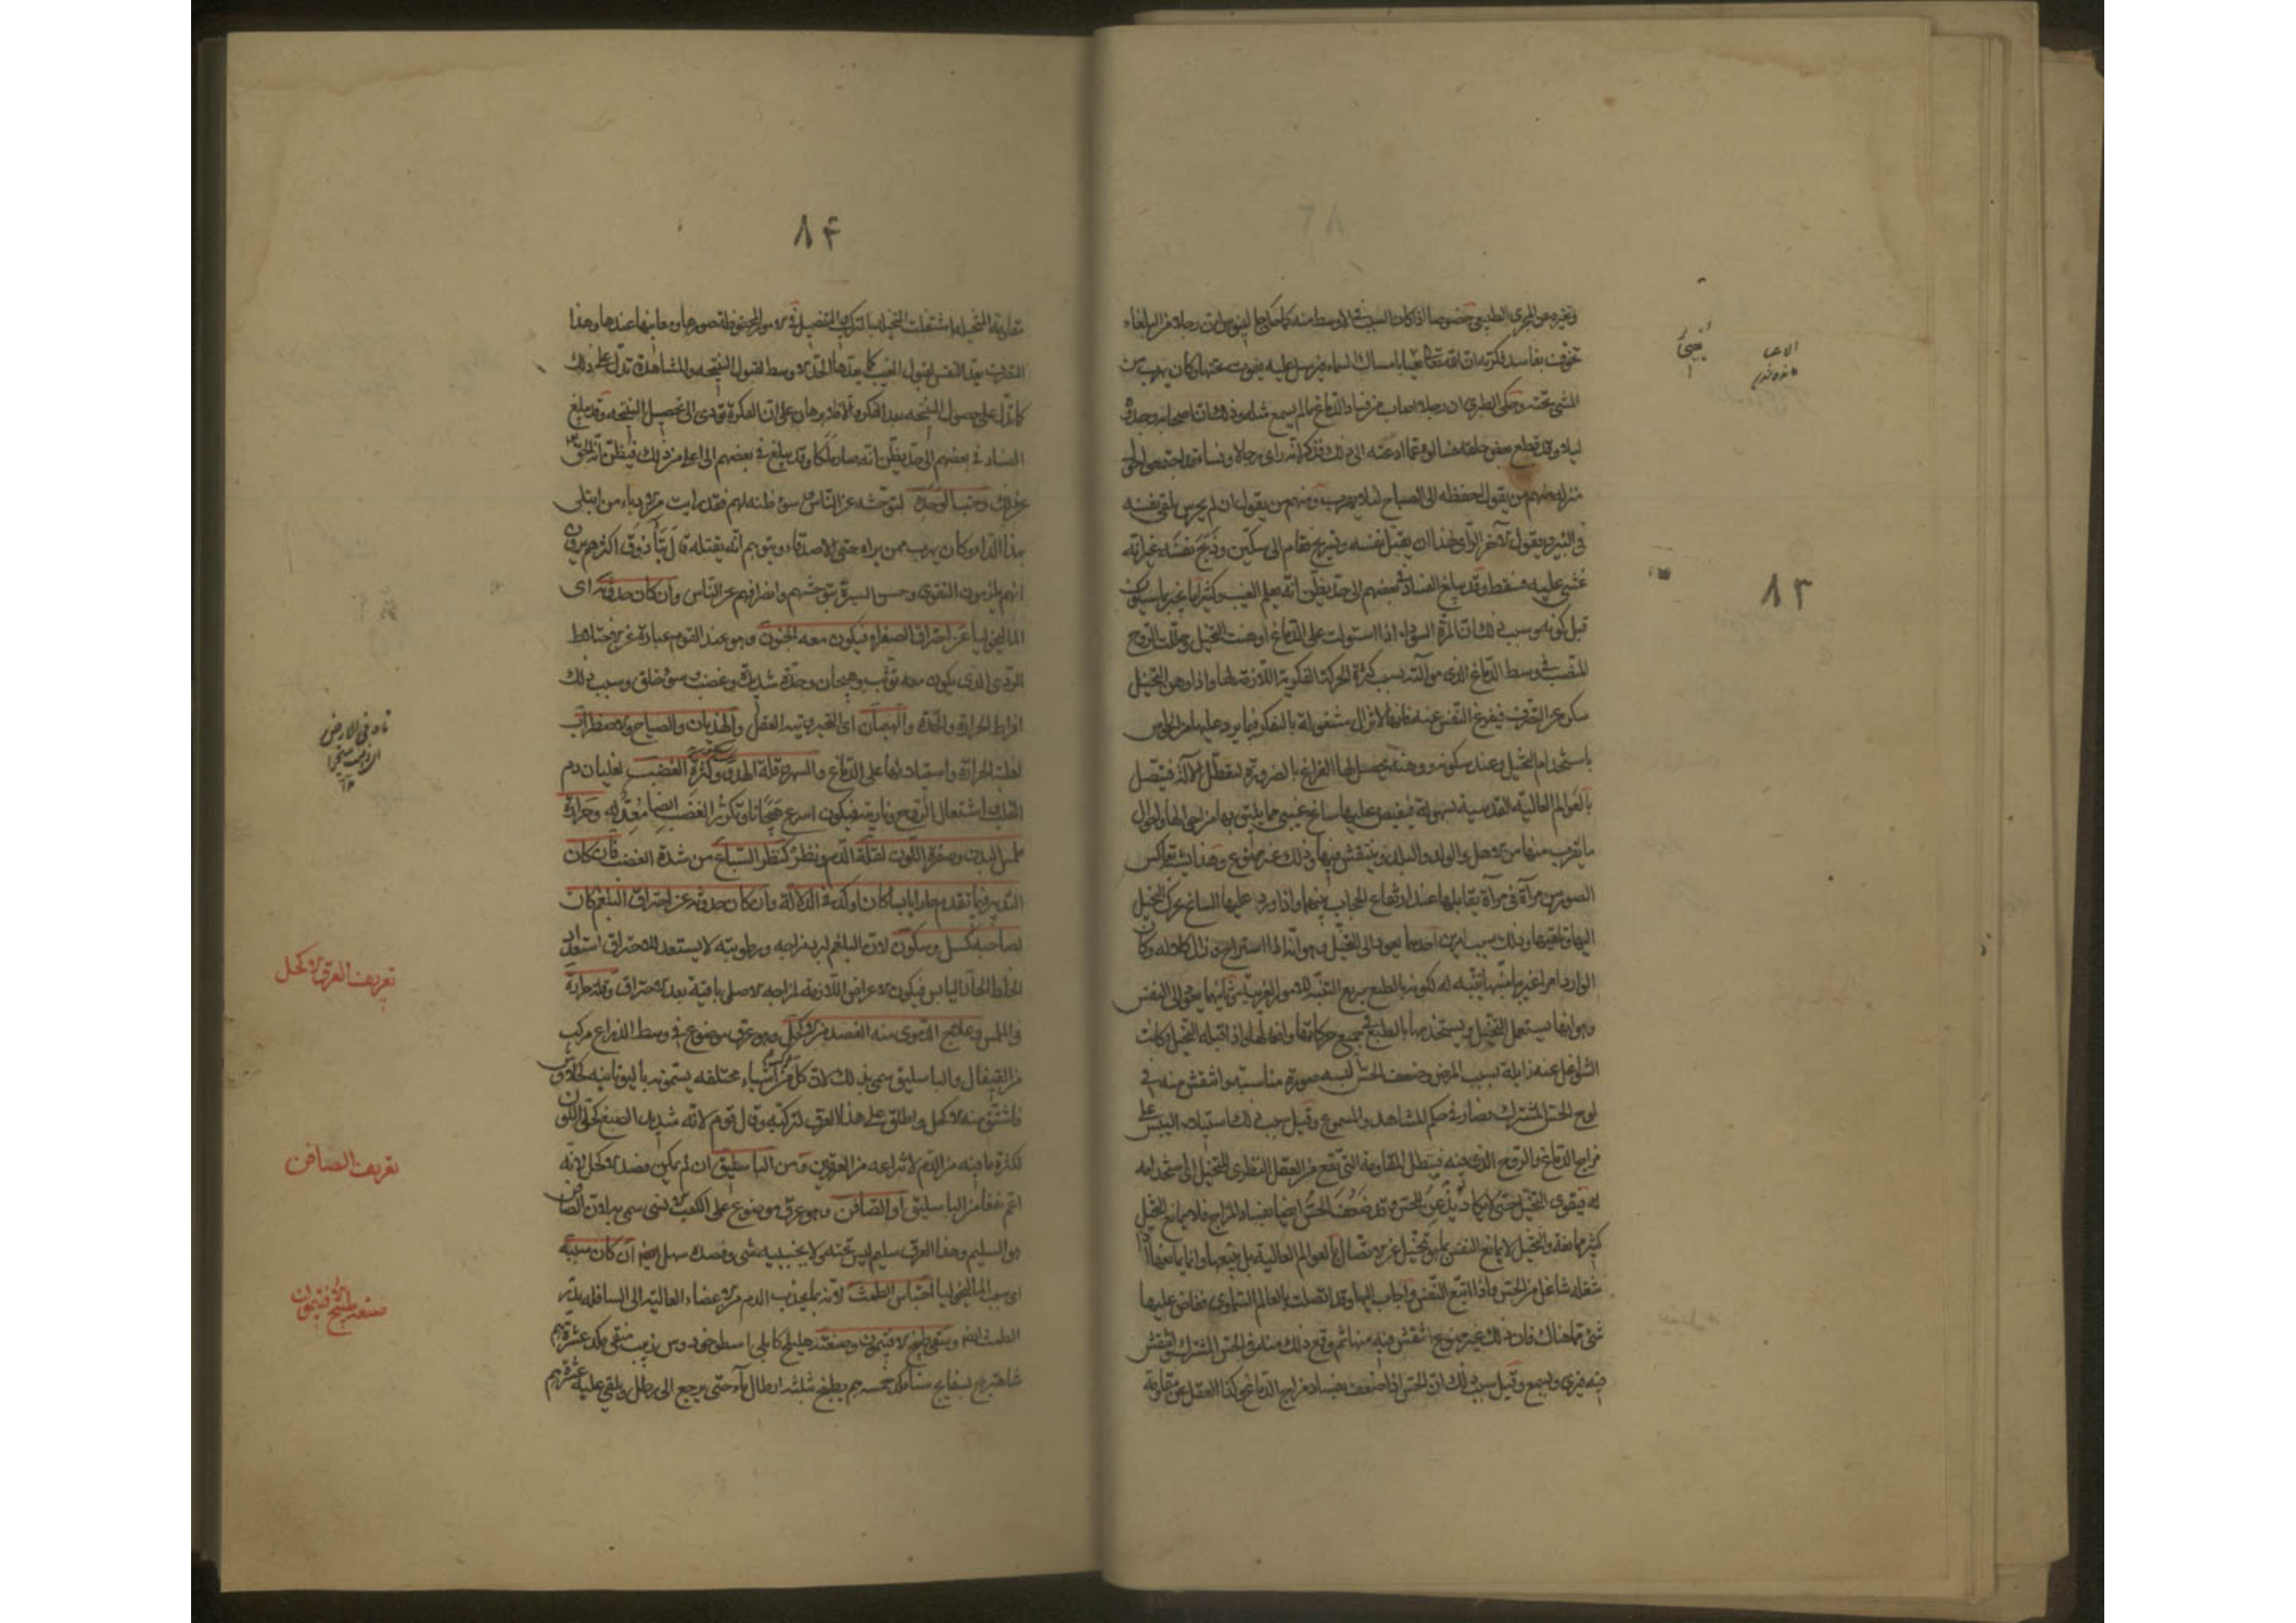 وتغيره عن المجرى الطبيعي خصوصا اذا كان السبب في الاوسط منه كما حكى جالينوس ان رجلا من
تخوفت بفاسد فكرته ان الله تعالى يعيا بامساك السماء فيرسل عليه فيموت تحتها وكان يهرب من
المشي تحته وحكى الطبري ان رجلا اصاب من فساد الدماغ ما لم يسمع مثله وذلك ان اصحابه وجدوه
ليلا وقد قطع بعض حلقه فسالوه عما دعته الى ذلك فذكر انه راى رجالا ونساء قد اجتمعوا حول
منزله فمنهم من يقول احفظه الى الصباح لئلا يهرب ومنهم من يقول ان لم يحرس يلقي نفسه
في البئر ويقول الآخر الراى لهذا ان يقتل نفسه وتستريح فقام الى سكين وذبح نفسه غير انه
غشي عليه فسقط وقد يبلغ الفساد في بعضهم الى حد يظن انه يعلم الغيب وكثيرا ما يخبر بما سيكون
قبل كونه وسبب ذلك ان المرة السوداء اذا استولت على الدماغ اوهنت التخيل وحللت الروح
المنصب في وسط الدماغ الذي هو آلته بسبب كثرة الحركة الفكرية اللازمة لها واذا وهن التخيل
سكن عن التصرف فيفرغ النفس عنه فانها لا تزال مشغولة بالتفكر فيما يرد عليها من الحواس
باستخدام التخيل وعند سكونه ووهنه يحصل لها الفراغ بالضرورة لتعطل الآلة فيتصل
بالعوالم العالية القدسية بسهولة فيفيض عليها سانح غيبي مما يليق بها من احوالها واحوال
ما يقرب منها من الاهل والولد والبلد وينتقش فيها وذلك غير ممتنع وهذا يشبه تعاكس
الصور من مرآة في مرآة يقابلها عند ارتفاع الحجاب بينهما واذا ورد عليها السانح تحرك التخيل
اليها وتلقيها وذلك بسبب امرين احدهما يعود الى التخيل وهو انه لما استراح وزال كلاله وكان
الوارد امرا غريبا منبها تنبه له لكونه بالطبع سريع التنبه للامور الغريبة وثانيهما يعود الى النفس
وهو انها يستعمل التخيل ويستخدمها بالطبع في جميع حركاتها وافعالها واذا قبله التخيل وكانت
الشواغل عنه زايلة بسبب المرض وضعف الحس البسه صورة مناسبة وانتقش منه في
لوح الحس المشترك فصار في حكم المشاهد والمسموع وقيل سبب ذلك استيلاء اليبس على
مزاج الدماغ والروح الذي فيه فيبطل المقاومة التي تقع من العقل النظري للتخيل الى استخدامه
له فيقوى التخيل حتى لا يكاد يذعن للحس وقد ضعف الحس ايضا بفساد المزاج فلا يمانع التخيل
كثير ممانعة والتخيل لا يمانع النفس بما هو تخيل عن الاتصال بالعوالم العالية بل يتبعها وانما يمانعها اذا
شغله شاغل من الحس فاذا اتبع النفس واجاب اليها وقد اتصلت بالعالم السماوي ففاض عليها
شيء مما هناك فان ذلك غير ممنوع انتقش فيه منها ثم وقع ذلك منه في الحس المشترك وانتقش
فيه فيرى ويسمع وقيل سبب ذلك ان الحس اذا ضعف بفساد مزاج الدماغ وكذا العقل عن مقاومة
٨٣
٨٤
مقاومة المتخيلة اشتغلت المتخيلة بالتركيب والتفصيل في الامور المحفوظة صورها ومعانيها عندها وهذا
التصرف يعد النفس لقبول الغيب كما يعدها الحد الاوسط لقبول النتيجة والمشاهدة تدل على ذلك
كما تدل على حصول النتيجة بعد الفكر والا فلا برهان على ان الفكرة تؤدي الى تحصيل النتيجة وقد يبلغ
الفساد في بعضهم الى حد يظن انه صار ملكا وقد يبلغ في بعضهم الى اعلى من ذلك فيظن انه الحق
عن ذلك وحب الوحدة لتوحشه عن الناس وسوء ظنه بهم فقد رايت من الادباء من ابتلى
بهذا الداء وكان يهرب ممن يراه حتى الاصدقاء ويتوهم انه يقتله قال اكثرهم يرون
انهم يلزمون التقوى وحسن السيرة بتوحشهم وانصرافهم عن الناس وان كان حدوثه اى
الماليخوليا عن احتراق الصفراء فيكون معه الجنون وهو عند القوم عبارة عن الاختلاط
الردي الذي يكون معه توثب وهيجان وحدة شديدة وغضب وسوء خلق وسبب ذلك
افراط الحرارة والحدة والهيمان اى التحير بتيه العقل والهذيان والصياح والاضطراب
لغلبة الحرارة واستيلائها على الدماغ والسهر وقلة الهدو وكثرة الغضب لغليان دم
القلب واشتعال الروح وناريته فيكون اسرع هيجانا وتكثر الغضب ايضا معد له وحرارة
ملمس البدن وصفرة اللون لقلة الدم ونظر كنظر السباع من شدة الغضب فان كان
التدبير فيما تقدم حارا يابسا كان اوكد في الدلالة وان كان حدوثه عن احتراق البلغم كان
لصاحبه كسل وسكون لان البلغم لبرد مزاجه ورطوبته لا يستعد للاحتراق استعداد
الخلط الحار اليابس فيكون الاعراض اللازمة لمزاجه الاصلي باقية بعد الاحتراق وقلة حرارة
في الملمس وعلاج الدموي منه الفصد من الاكحل وهو عرق موضوع في وسط الذراع مركب
من القيفال والباسليق سمى بذلك لان كل مركب من اشياء مختلفة يسمونه باليونانية كحلاوس
فاشتق منه الاكحل واطلق على هذا العرق لتركبه وقال قوم لانه شديد الصبغ كحلي اللون
لكثرة ما فيه من الدم لانتزاعه من العرقين ومن الباسليق ان لم يمكن فصد الاكحل لانه
اعم نفعا من الباسليق او الصافن وهو عرق موضوع على الكعب الانسي سمي به لان الصافن
هو السليم وهذا العرق سليم ليس تحته ولا بجنبيه شيء وفصده سهل ان كان سببه
اى سبب الماليخوليا احتباس الطمث لانه بما يجذب الدم من الاعضاء العالية الى السافلة يدر
الطمث ايضا وسقى طبيخ الافتيمون وصنعته هليلج كابلي اسطوخودوس زبيب منقى مكد عشرة دراهم
شاهترج بسفايج سنا مكد خمسة دراهم يطبخ بثلثة ارطال ماء حتى يرجع الى رطل ويلقى عليه عشرة دراهم
تاه في الارض
تعريف العرق الاكحل
تعريف الصافن
صنعة طبيخ الافتيمون